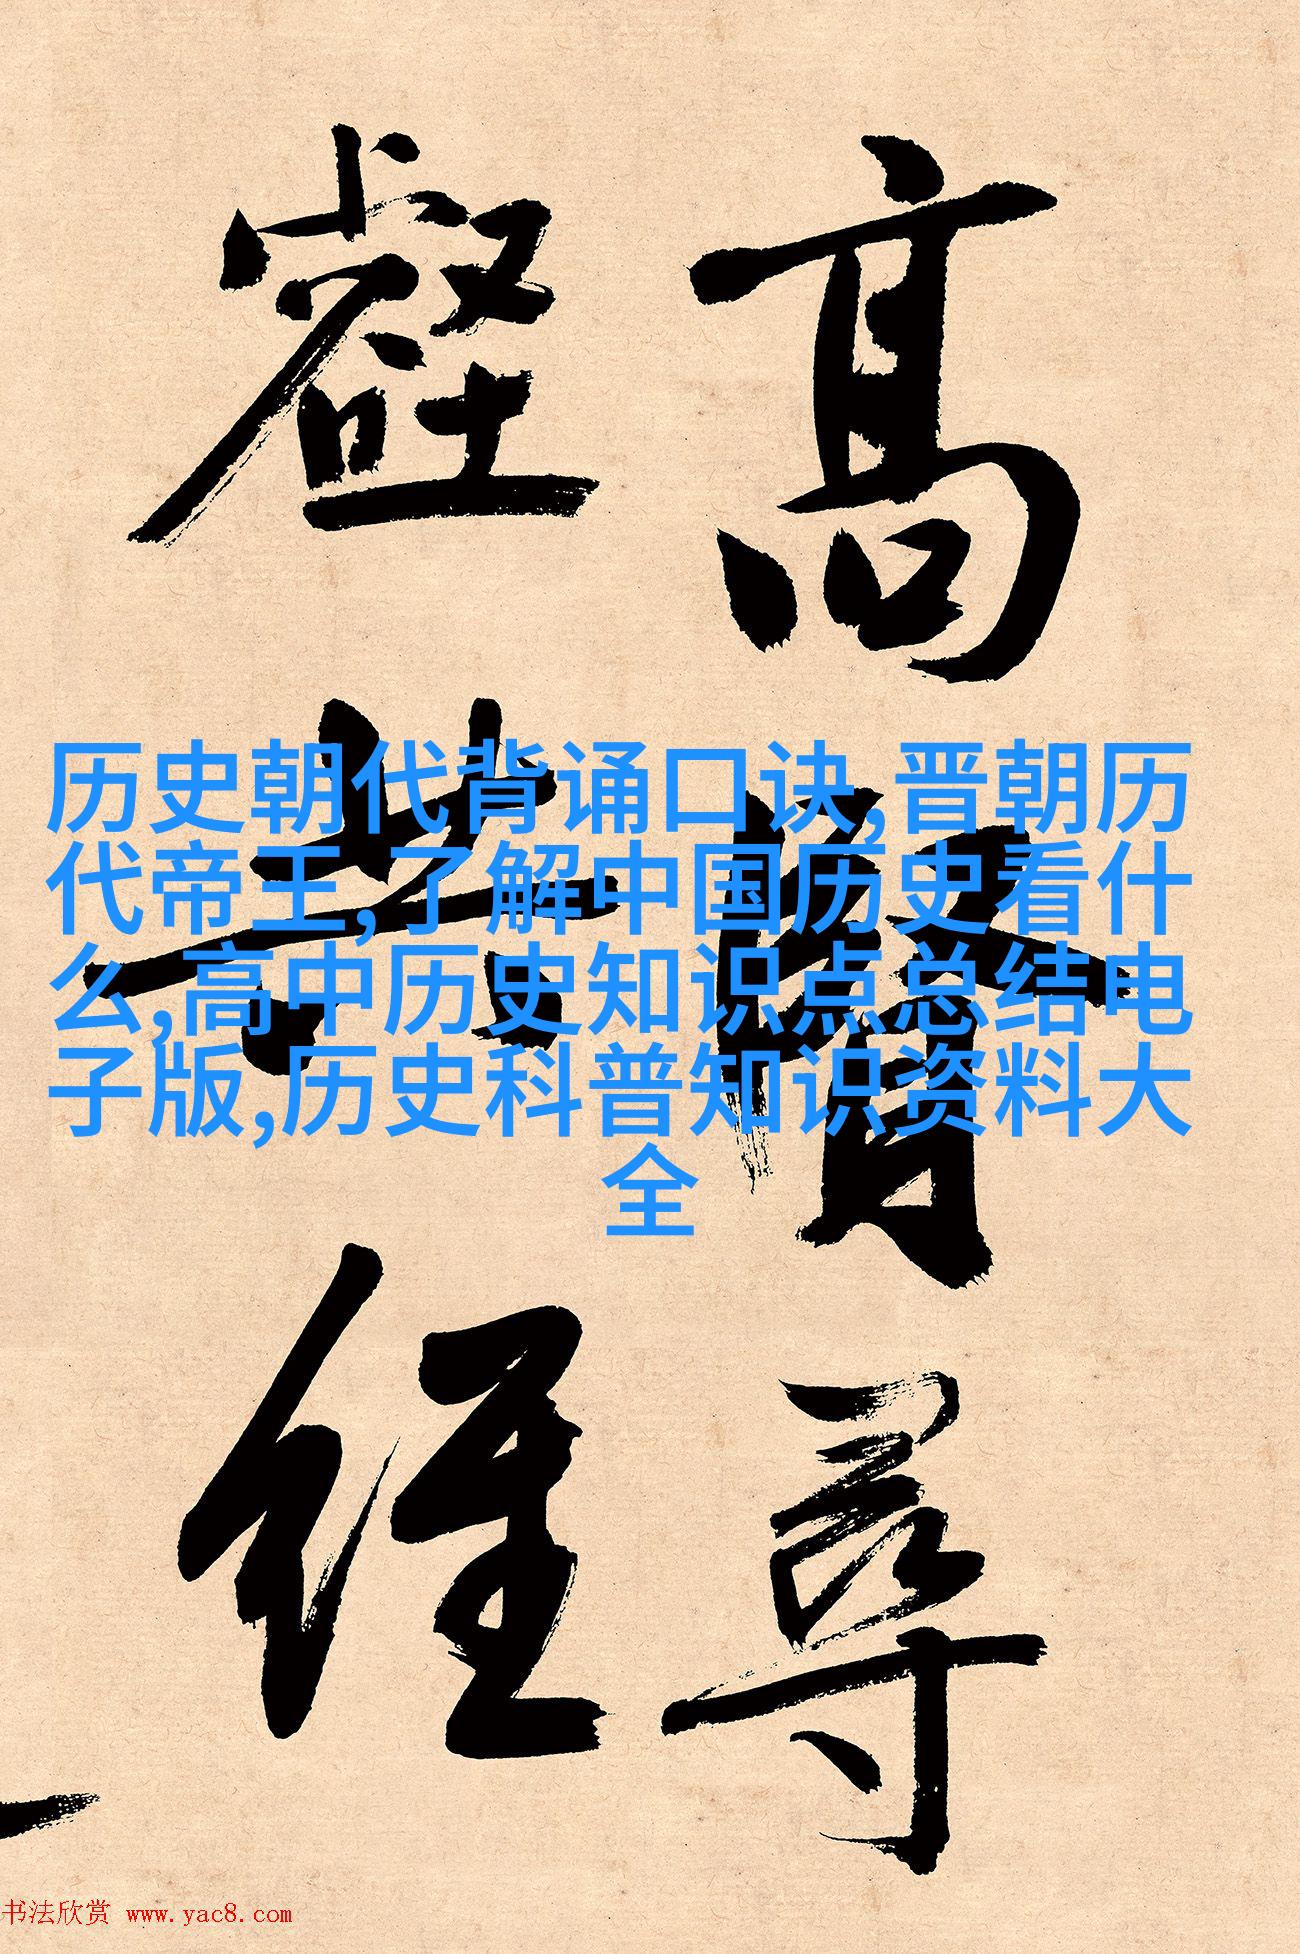 高賢尋
壑共經
历史朝代背诵口诀,晋朝历
代帝王,了解中国历史看什
么,高中历史知识点总结电
子版,历史科普知识资料大
全
书法欣赏 www.yac8.com